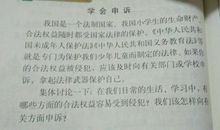 学会申诉
我国是一个法制国家。我国小学生的生命财产、
合法权益随时都受国家法律的保护。《中华人民共和
国未成年人保护法》《中华人民共和国义务教育法》等
就是专门为保护我们少年儿童而制定的法律。如果你
的合法权益被侵犯，应该及时向有关部门或学校申
诉，拿起法律武器保护自己。
集体讨论一下：在我们日常的生活、学习中，有
哪些方面的合法权益容易受到侵犯？我们该怎样向有
关方面申诉？